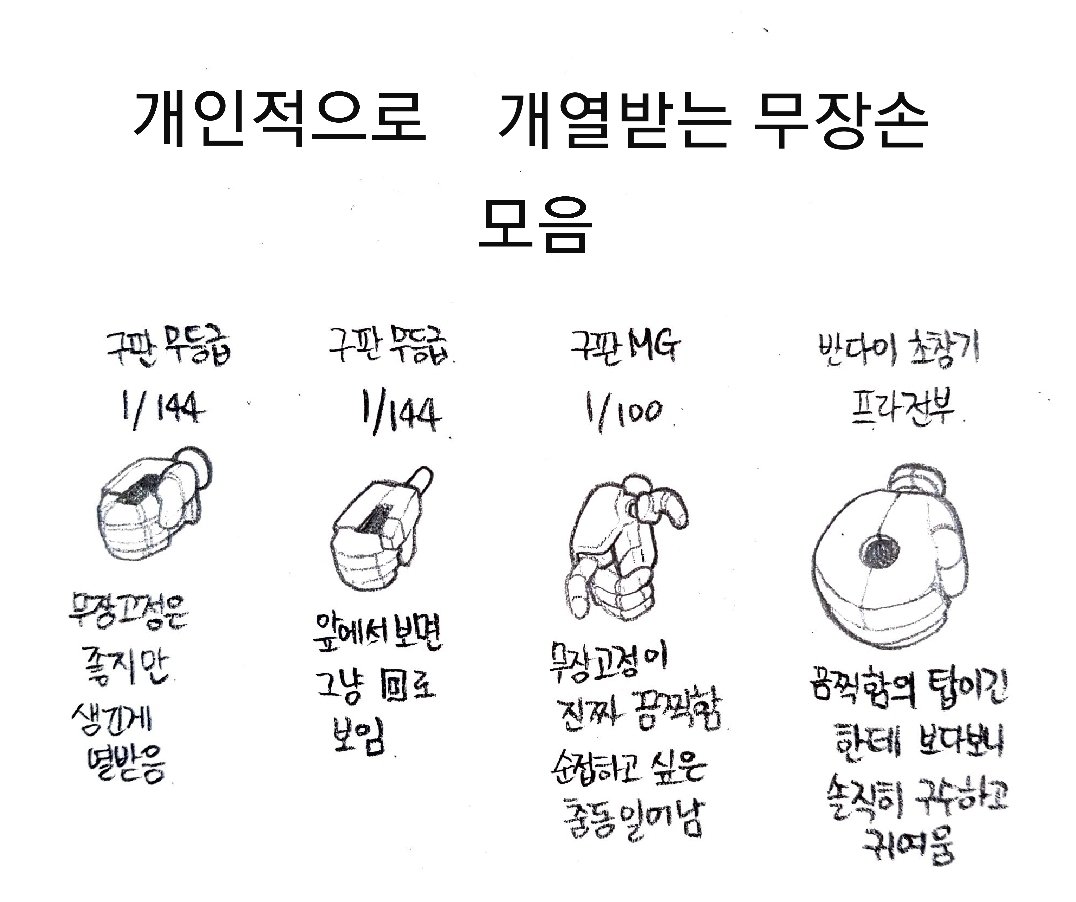 개인적으로 개열받는 무장손
모음
구판 무등급
1/144
무장고정은
좋지만
생긴게
열받음
구판 무등급
1/144
앞에서 보면
그냥 回로
보임
구판 MG
1/100
무장고정이
진짜 끔찍함
순접하고 싶은
충동일어남
반다이 초창기
프라전부
끔찍함의 탑이긴
한데 보다보니
솔직히 구수하고
귀여움